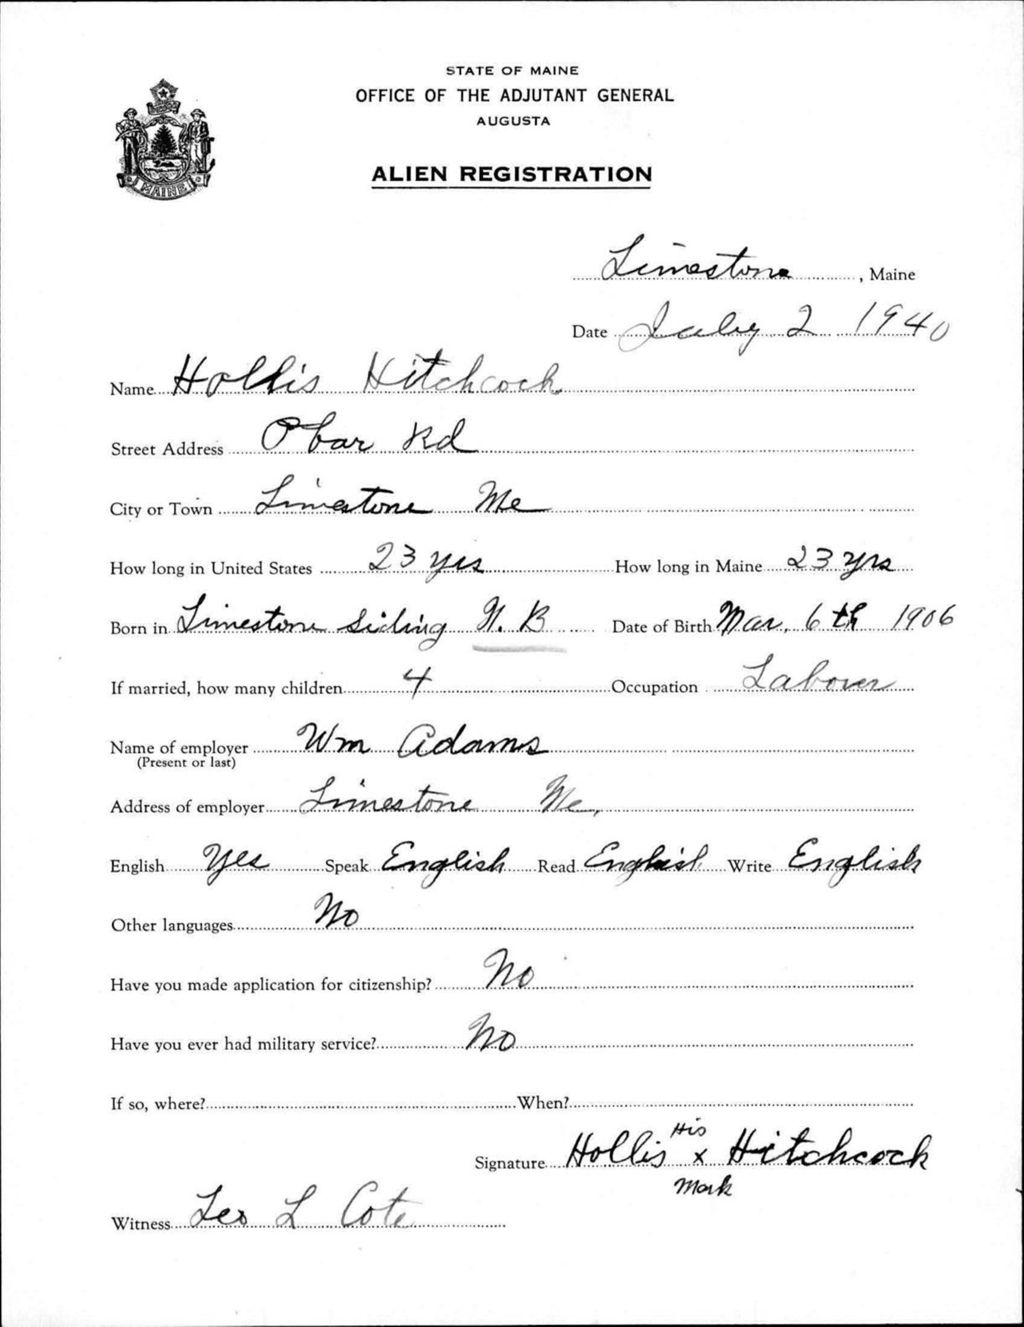 STATE OF MAINE
OFFICE OF THE ADJUTANT GENERAL
AUGUSTA
ALIEN REGISTRATION
MAINE
Limestone, Maine
Date July 2 1940
Name Hollis Hitchcock
Street Address Obar Rd
City or Town Limestone Me
How long in United States 23 yrs How long in Maine 23 yrs
Born in Limestone Siding N. B Date of Birth Mar. 6th 1906
If married, how many children 4 Occupation Laborer
Name of employer Wm Adams
(Present or last)
Address of employer Limestone Me,
English Yes Speak English Read English Write English
Other languages No
Have you made application for citizenship? No
Have you ever had military service? No
If so, where? When?
Signature Hollis His x Mark Hitchcock
Witness Leo L Cote